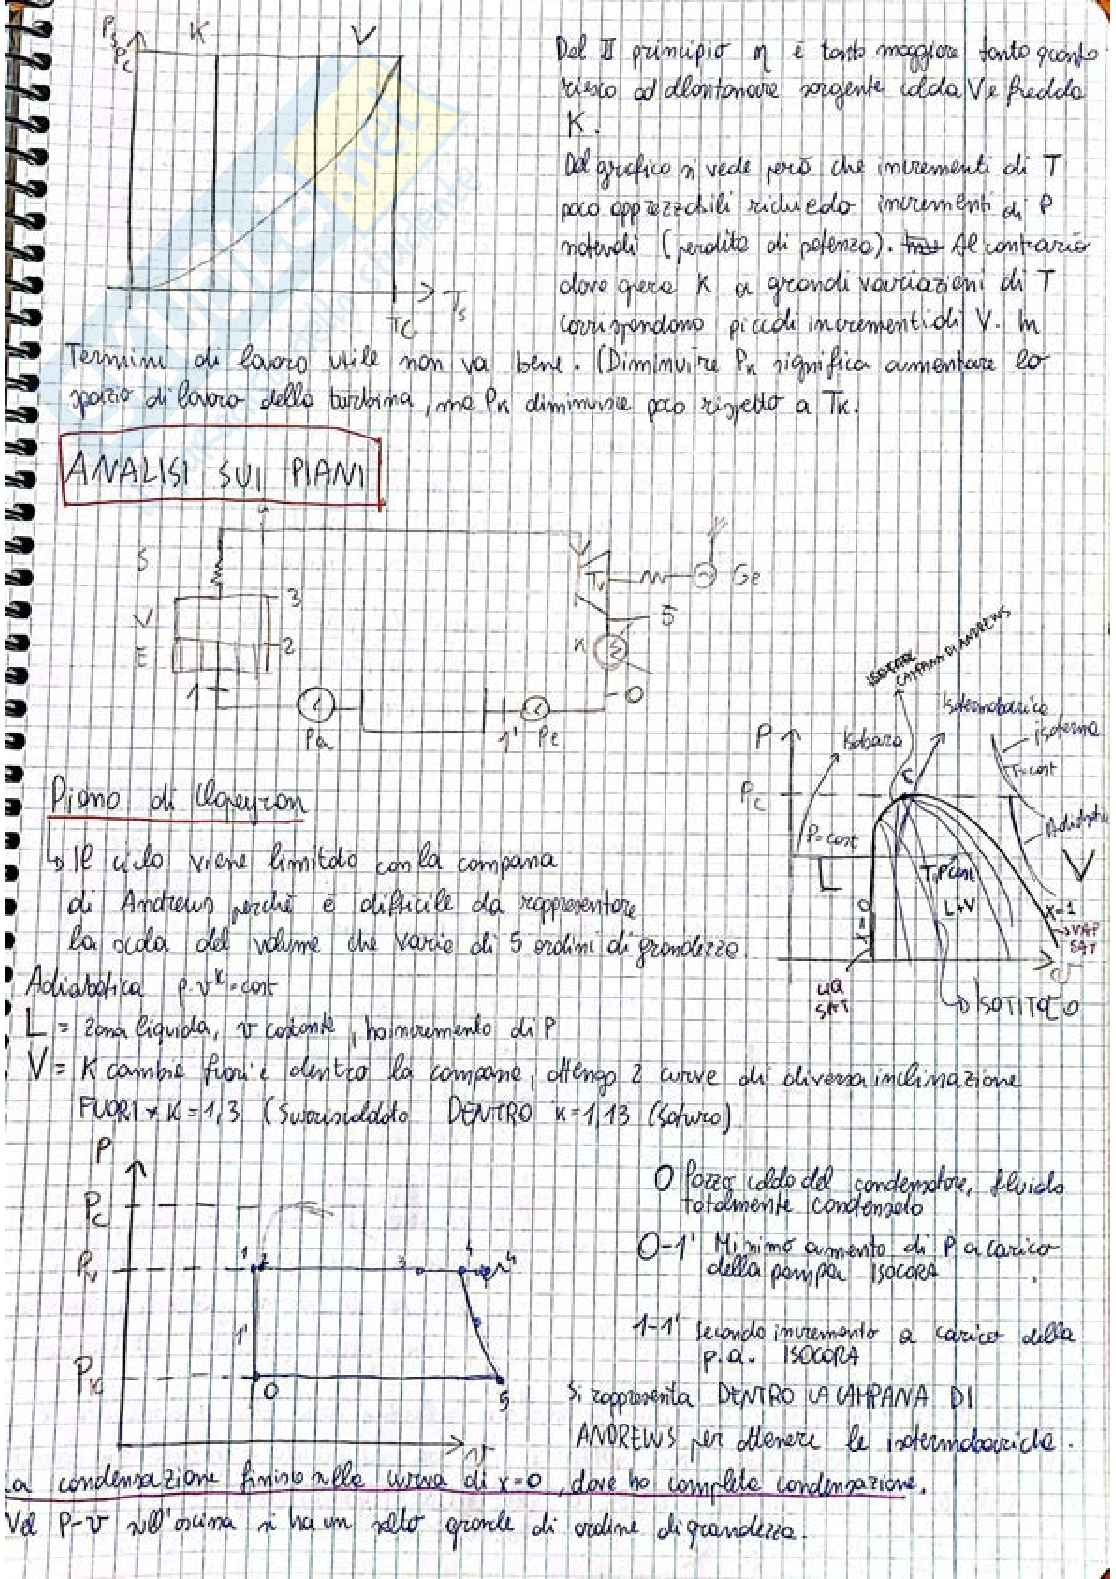 Ps, Pc K V
Tc Ts
Dal II principio η è tanto maggiore tanto quanto
riesco ad allontanare sorgente calda V e fredda
K.
Dal grafico si vede però che incrementi di T
poco apprezzabili richiedo incrementi di P
notevoli (perdita di potenza). Al contrario
dove opera K a grandi variazioni di T
corrispondono piccoli incrementi di V. In
Termini di lavoro utile non va bene. (Diminuire Pk significa aumentare lo
spazio di lavoro della turbina, ma Pk diminuisce poco rispetto a Tk.
ANALISI SUI PIANI
4
S
V
E
3
2
1
Pa
1' Pe
0
K
5
Tv
Ge
ISOTITOLE
CAMPANA DI ANDREWS
Isotermobarica
isoterma
T=cost
Adiabatica
P
Pc
Isobara
P=cost
C
L
T,P cost
L+V
V
x=0
x=1
VAP
SAT
v
LIQ
SAT
ISOTITOLO
Piano di Clapeyron
Il ciclo viene limitato con la campana
di Andrews perchè è difficile da rappresentare
la scala del volume che varia di 5 ordini di grandezza.
Adiabatica p·v^k=cost
L = Zona liquida, v costante, ho incremento di P
V = K cambia fuori e dentro la campana, ottengo 2 curve di diversa inclinazione
FUORI K=1,3 (Surriscaldato DENTRO K=1,13 (Saturo)
P
Pc
Pv
Pk
1 2 3 4 4
1'
0
5
v
0 Pozzo caldo del condensatore, fluido
totalmente condensato
0-1' Minimo aumento di P a carico
della pompa ISOCORA
1-1' secondo incremento a carico della
p.a. ISOCORA
Si rappresenta DENTRO LA CAMPANA DI
ANDREWS per ottenere le isotermobariche.
La condensazione finisce sulla curva di x=0, dove ho completa condensazione.
Nel P-v sull'ascissa si ha un salto grande di ordine di grandezza.